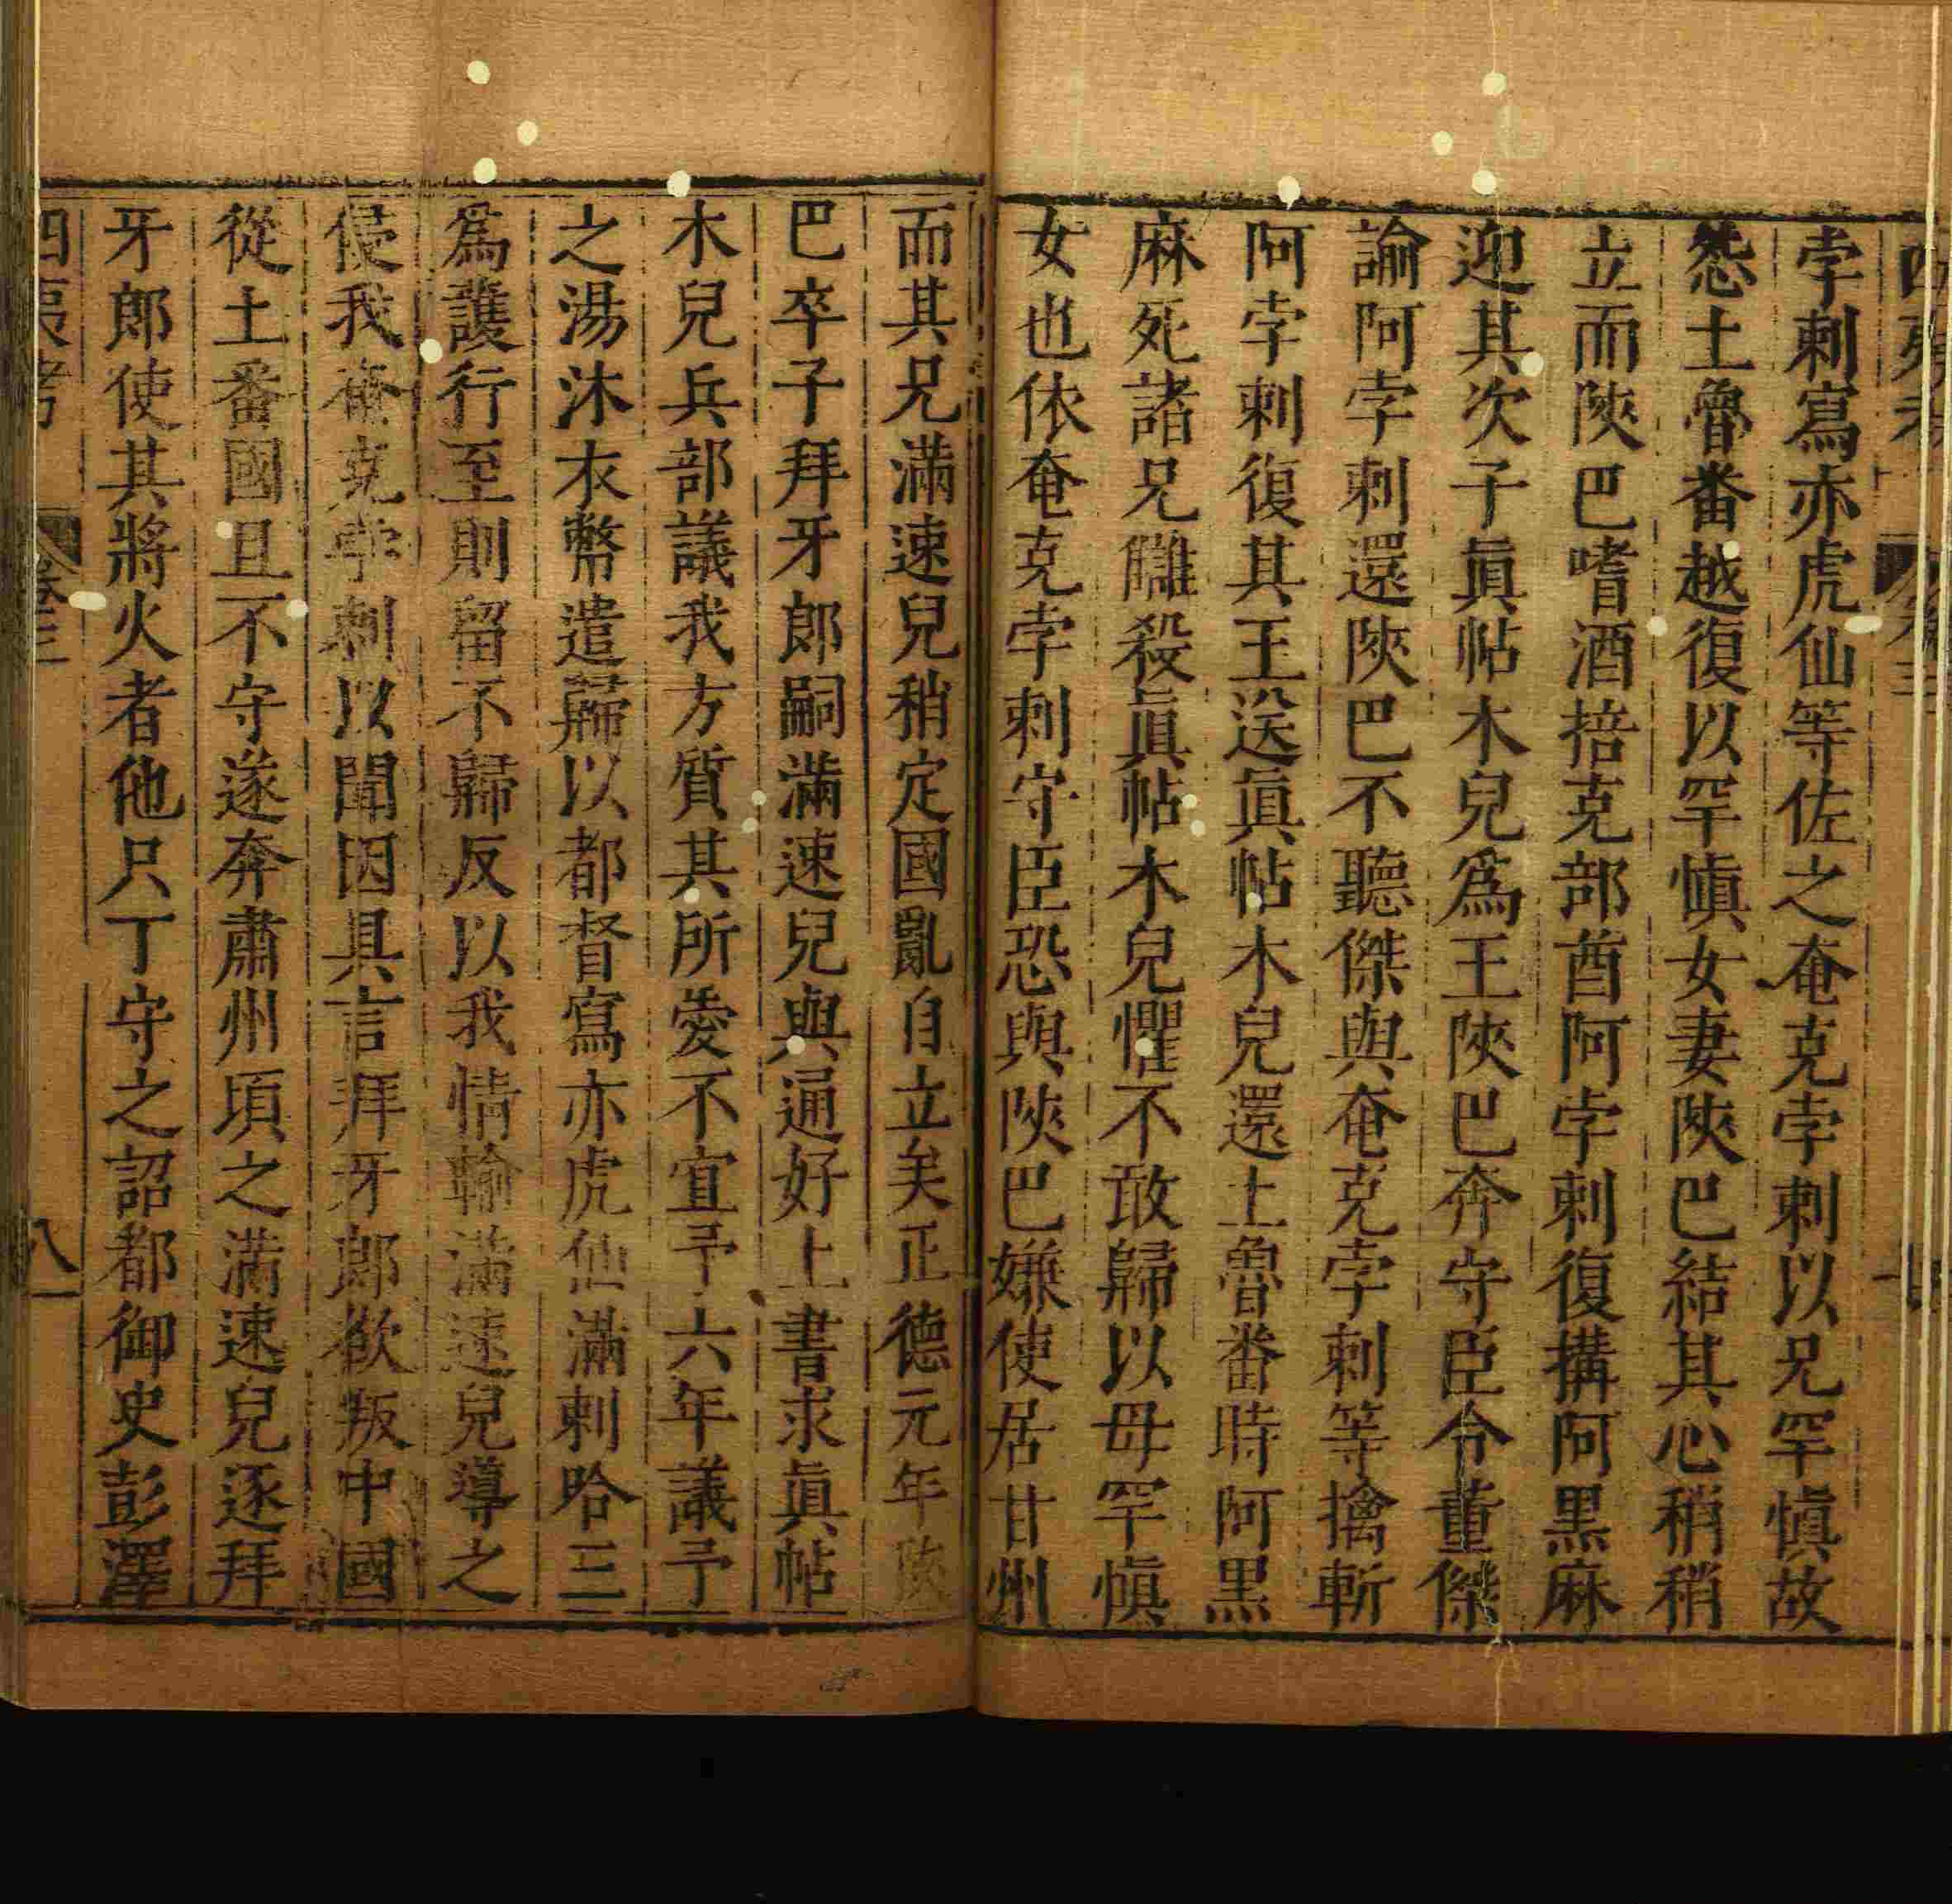 孛剌寫亦虎仙等佐之奄克孛剌以兄罕愼故
怨土魯番越復以罕愼女妻陝巴結其心稍稍
立而陝巴嗜酒掊克部酋阿孛剌復搆阿黑麻
迎其次子眞帖木兒爲王陝巴奔守臣令董傑
諭阿孛剌還陝巴不聽傑與奄克孛剌等擒斬
阿孛剌復其王送眞帖木兒還土魯番時阿黑
麻死諸兄讎殺眞帖木兒懼不敢歸以母罕愼
女也依奄克孛剌守臣恐與陝巴嫌使居甘州
而其兄滿速兒稍定國亂自立矣正德元年陝
巴卒子拜牙郎嗣滿速兒與通好上書求眞帖
木兒兵部議我方質其所愛不宜予六年議予
之湯沐衣幣遣歸以都督寫亦虎仙滿剌哈三
爲護行至則留不歸反以我情輸滿速兒導之
侵我奄克孛剌以聞因具言拜牙郎欲叛中國
從土番國且不守遂奔肅州頃之滿速兒逐拜
牙郎使其將火者他只丁守之詔都御史彭澤
四夷考
卷三
八一